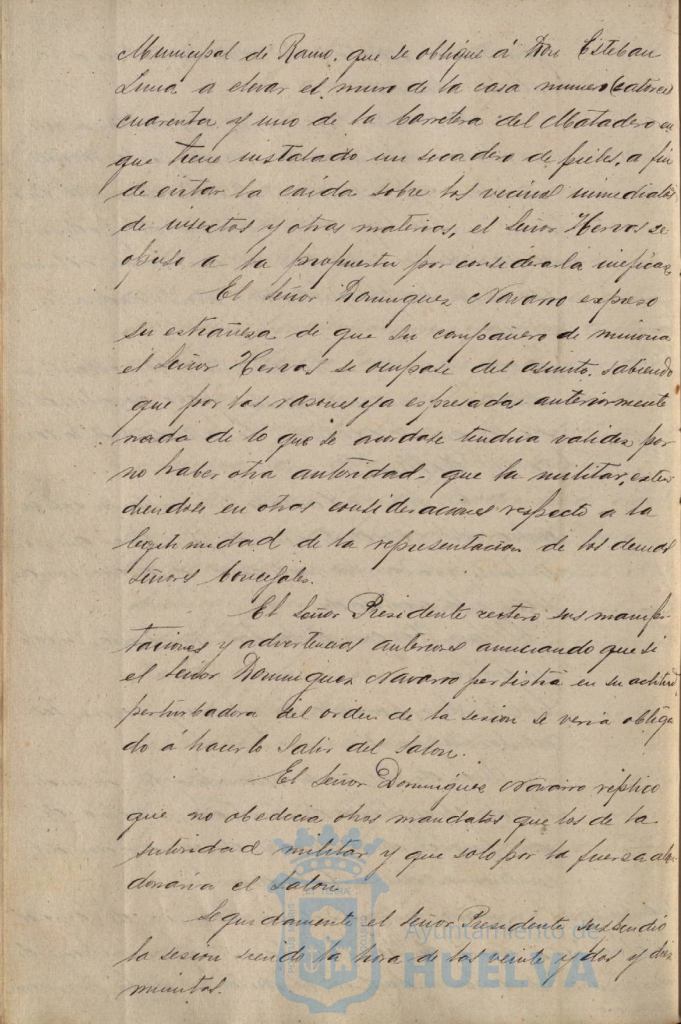 Municipal de Ramo, que se oblique á Don Esteban
Luna a elevar el muro de la casa numero (catorce)
cuarenta y uno de la barretera del Matadero en
que tiene instalado un secadero de pieles, a fin
de evitar la caida sobre los vecinos inmediatos
de insectos y otras materias, el Señor Hervas se
opuso a la propuesta por considerarla ineficaz
El Señor Dominguez Navarro expreso
su estrañesa de que su compañero de minoria
el Señor Hervas se ocupase del asunto, sabiendo
que por las rasones ya espresadas anteriormente
nada de lo que se acordase tendria validez por
no haber otra autoridad que la militar, exten
diendose en otras consideraciones respecto a la
legitimidad de la representacion de los demas
Señores Concejales.
El Señor Presidente reitero sus manifes
taciones y advertencias anteriores anunciando que si
el Señor Dominguez Navarro persistia en su actitud
perturbadora del orden de la sesion se veria obliga
do á hacerlo salir del salon.
El Señor Dominguez Navarro replico
que no obedecia otros mandatos que los de la
autoridad militar y que solo por la fuerza aban
donaria el salon
Seguidamente el Señor Presidente suspendio
la sesion siendo la hora de las veinte y dos y diez
minutos.
Ayuntamiento de
HUELVA